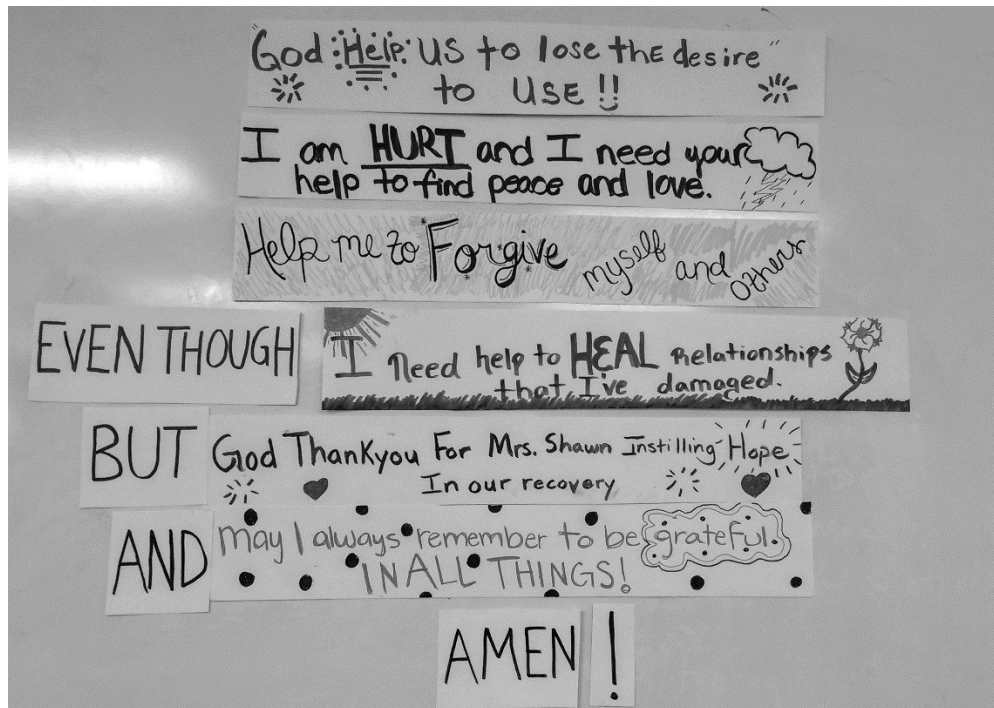 "God Help us to lose the desire"
to USE!!
I am HURT and I need your
help to find peace and love.
Help me to Forgive myself and others
EVEN THOUGH I Need help to HEAL Relationships
that I've damaged.
BUT God Thankyou For Mrs. Shawn Instilling Hope
In our recovery
AND may I always remember to be grateful.
IN ALL THINGS!
AMEN!